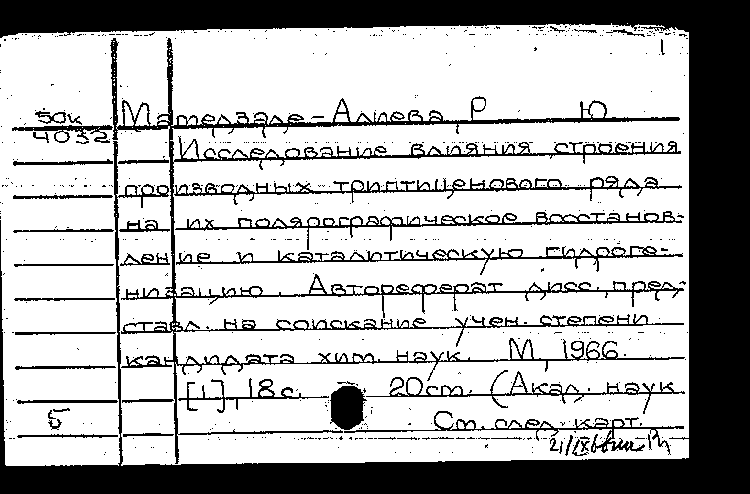 1
50к Мамедзаде-Алиева, Р Ю.
4032 Исследование влияния строения
производных триптиценового ряда
на их полярографическое восстанов-
ление и каталитическую гидроге-
низацию. Автореферат дисс., пред-
ставл. на соискание учен. степени
кандидата хим. наук. М, 1966.
[1], 18 с. 20 см. (Акад. наук
Б См. след. карт.
21/IX